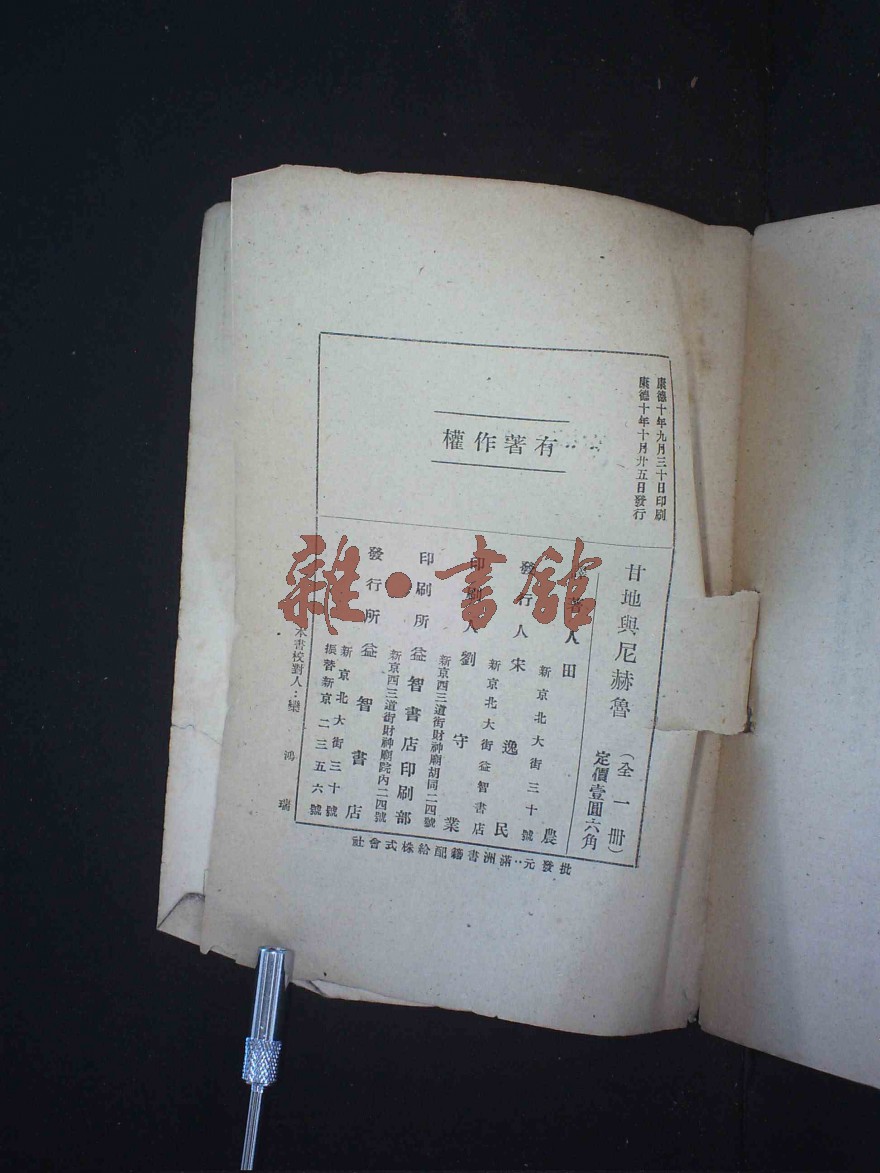 康德十年九月三十日印刷
康德十年十月廿五日發行
有著作權
甘地與尼赫魯
(全一冊)
定價壹圓六角
著人 田農
新京北大街三十號
發行人 宋逸民
新京北大街益智書店
印刷人 劉守業
新京四三道街財神廟胡同二四號
印刷所 益智書店印刷部
新京四三道街財神廟院內二四號
發行所 益智書店
新京北大街三十號
振替新京二三五六號
本書校對人:欒鴻瑞
批發元:滿洲書籍配給株式會社
雜·書館